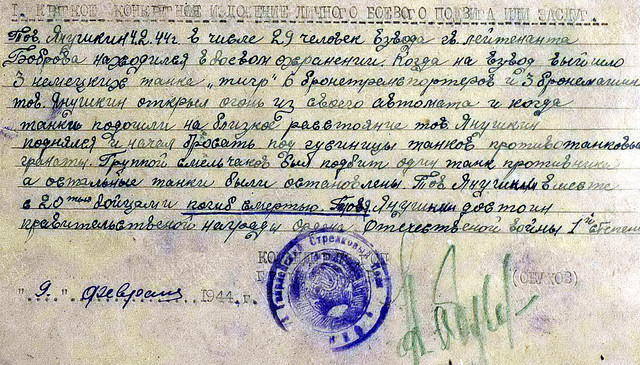 I. КРАТКОЕ КОНКРЕТНОЕ ИЗЛОЖЕНИЕ ЛИЧНОГО БОЕВОГО ПОДВИГА ИЛИ ЗАСЛУГ
Тов. Янушкин 4.2.44г в числе 29 человек взвода гв лейтенанта
Боброва находился в боевом охранении. Когда на взвод вышло
3 немецких танка "тигр" 6 бронетрельпортеров и 3 бронемашин
тов. Янушкин открыл огонь из своего автомата и когда
танки подошли на близкое расстояние тов Янушкин
поднялся и начал бросать под гусиницы танков противотанковые
гранаты. Группой смельчаков был подбит один танк противника
а остальные танки были остановлены Тов Янушкин вместе
с 20тью бойцами погиб смертью. Тов Янушкин достоин
правительственой награды Орден Отечественой войны 1й степени
КО
Г
Стрелковый Полк
(ОБУХОВ)
"9" февраля 1944 г.